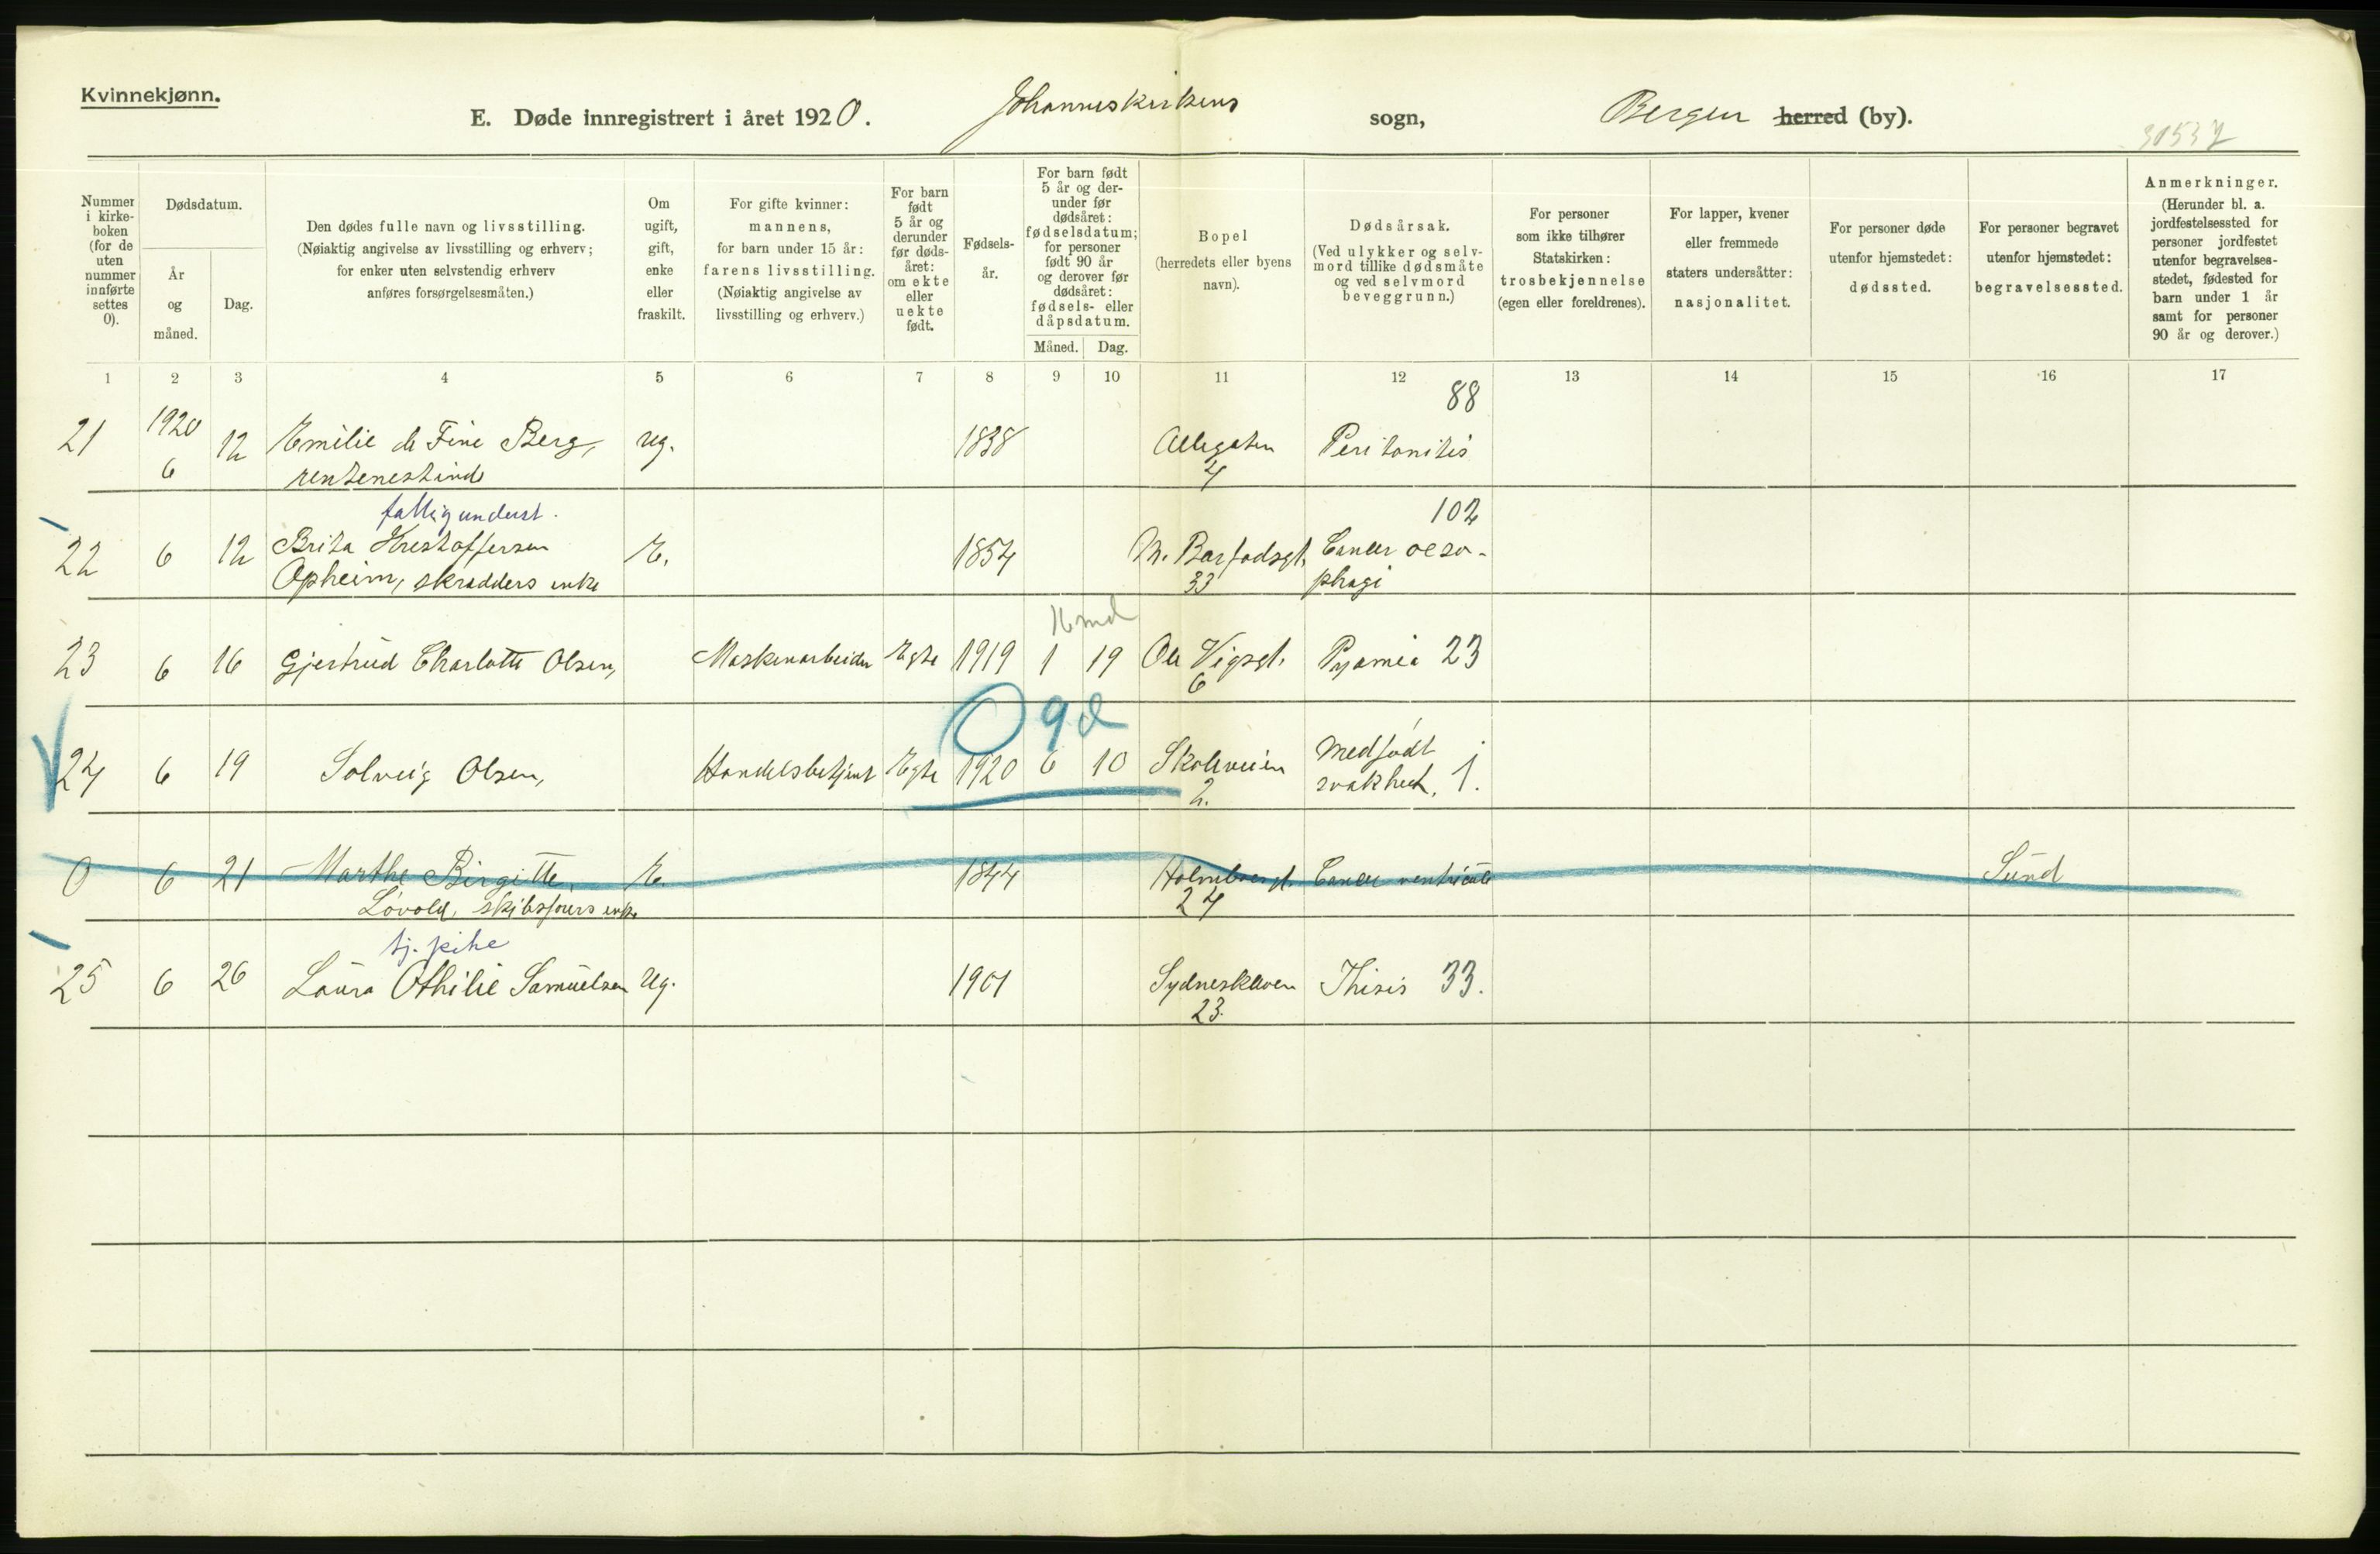 Kvinnekjønn.
E. Døde innregistrert i året 1920. Johanneskirkens sogn, Bergen herred (by).
Nummer i kirke- boken (for de uten nummer innførte settes 0).
Dødsdatum.
År og måned.
Dag.
Den dødes fulle navn og livsstilling.
(Nøiaktig angivelse av livsstilling og erhverv;
for enker uten selvstendig erhverv
anføres forsørgelsesmåten.)
Om ugift, gift, enke eller fraskilt.
For gifte kvinner:
mannens,
for barn under 15 år:
farens livsstilling.
(Nøiaktig angivelse av
livsstilling og erhverv.)
For barn født 5 år og derunder før døds- året: om ekte eller uekte født.
Fødsels- år.
For barn født
5 år og der-
under før
dødsåret:
fødselsdatum;
for personer
født 90 år
og derover før
dødsåret:
fødsels- eller
dåpsdatum.
Måned. Dag.
Bopel
(herredets eller byens
navn).
Dødsårsak.
(Ved ulykker og selv-
mord tillike dødsmåte
og ved selvmord
beveggrunn.)
For personer
som ikke tilhører
Statskirken:
trosbekjennelse
(egen eller foreldrenes).
For lapper, kvener
eller fremmede
staters undersåtter:
nasjonalitet.
For personer døde
utenfor hjemstedet:
dødssted.
For personer begravet
utenfor hjemstedet:
begravelsessted.
Anmerkninger.
(Herunder bl. a.
jordfestelsessted for
personer jordfestet
utenfor begravelses-
stedet, fødested for
barn under 1 år
samt for personer
90 år og derover.)
1 2 3 4 5 6 7 8 9 10 11 12 13 14 15 16 17
88
21 1920 6 12 Emilie de Fine Berg, ug. 1838 Allegaten Peritonitis
4
fattigunderst.
102
22 6 12 Brita Kristoffersen E. 1854 33 Cancer oeso-
Opheim, skrædders enke phagi
16 md
23 6 16 Gjertrud Charlotte Olsen, Maskinarbeider Egte 1919 1 19 Ole Vigsgt. Pyæmia 23
6
0 9 d
24 6 19 Solveig Olsen, Handelsbetjent Egte 1920 6 10 Skoleveien Medfødt
2. svakhet. 1.
0 6 21 Marthe Birgitte E. 1844 Cancer ventriculi Sund
Løvold, enke 24
tj. pike
25 6 26 Laura Othilie Samuelsen Ug. 1901 Sydneskleven Thisis 33.
23.